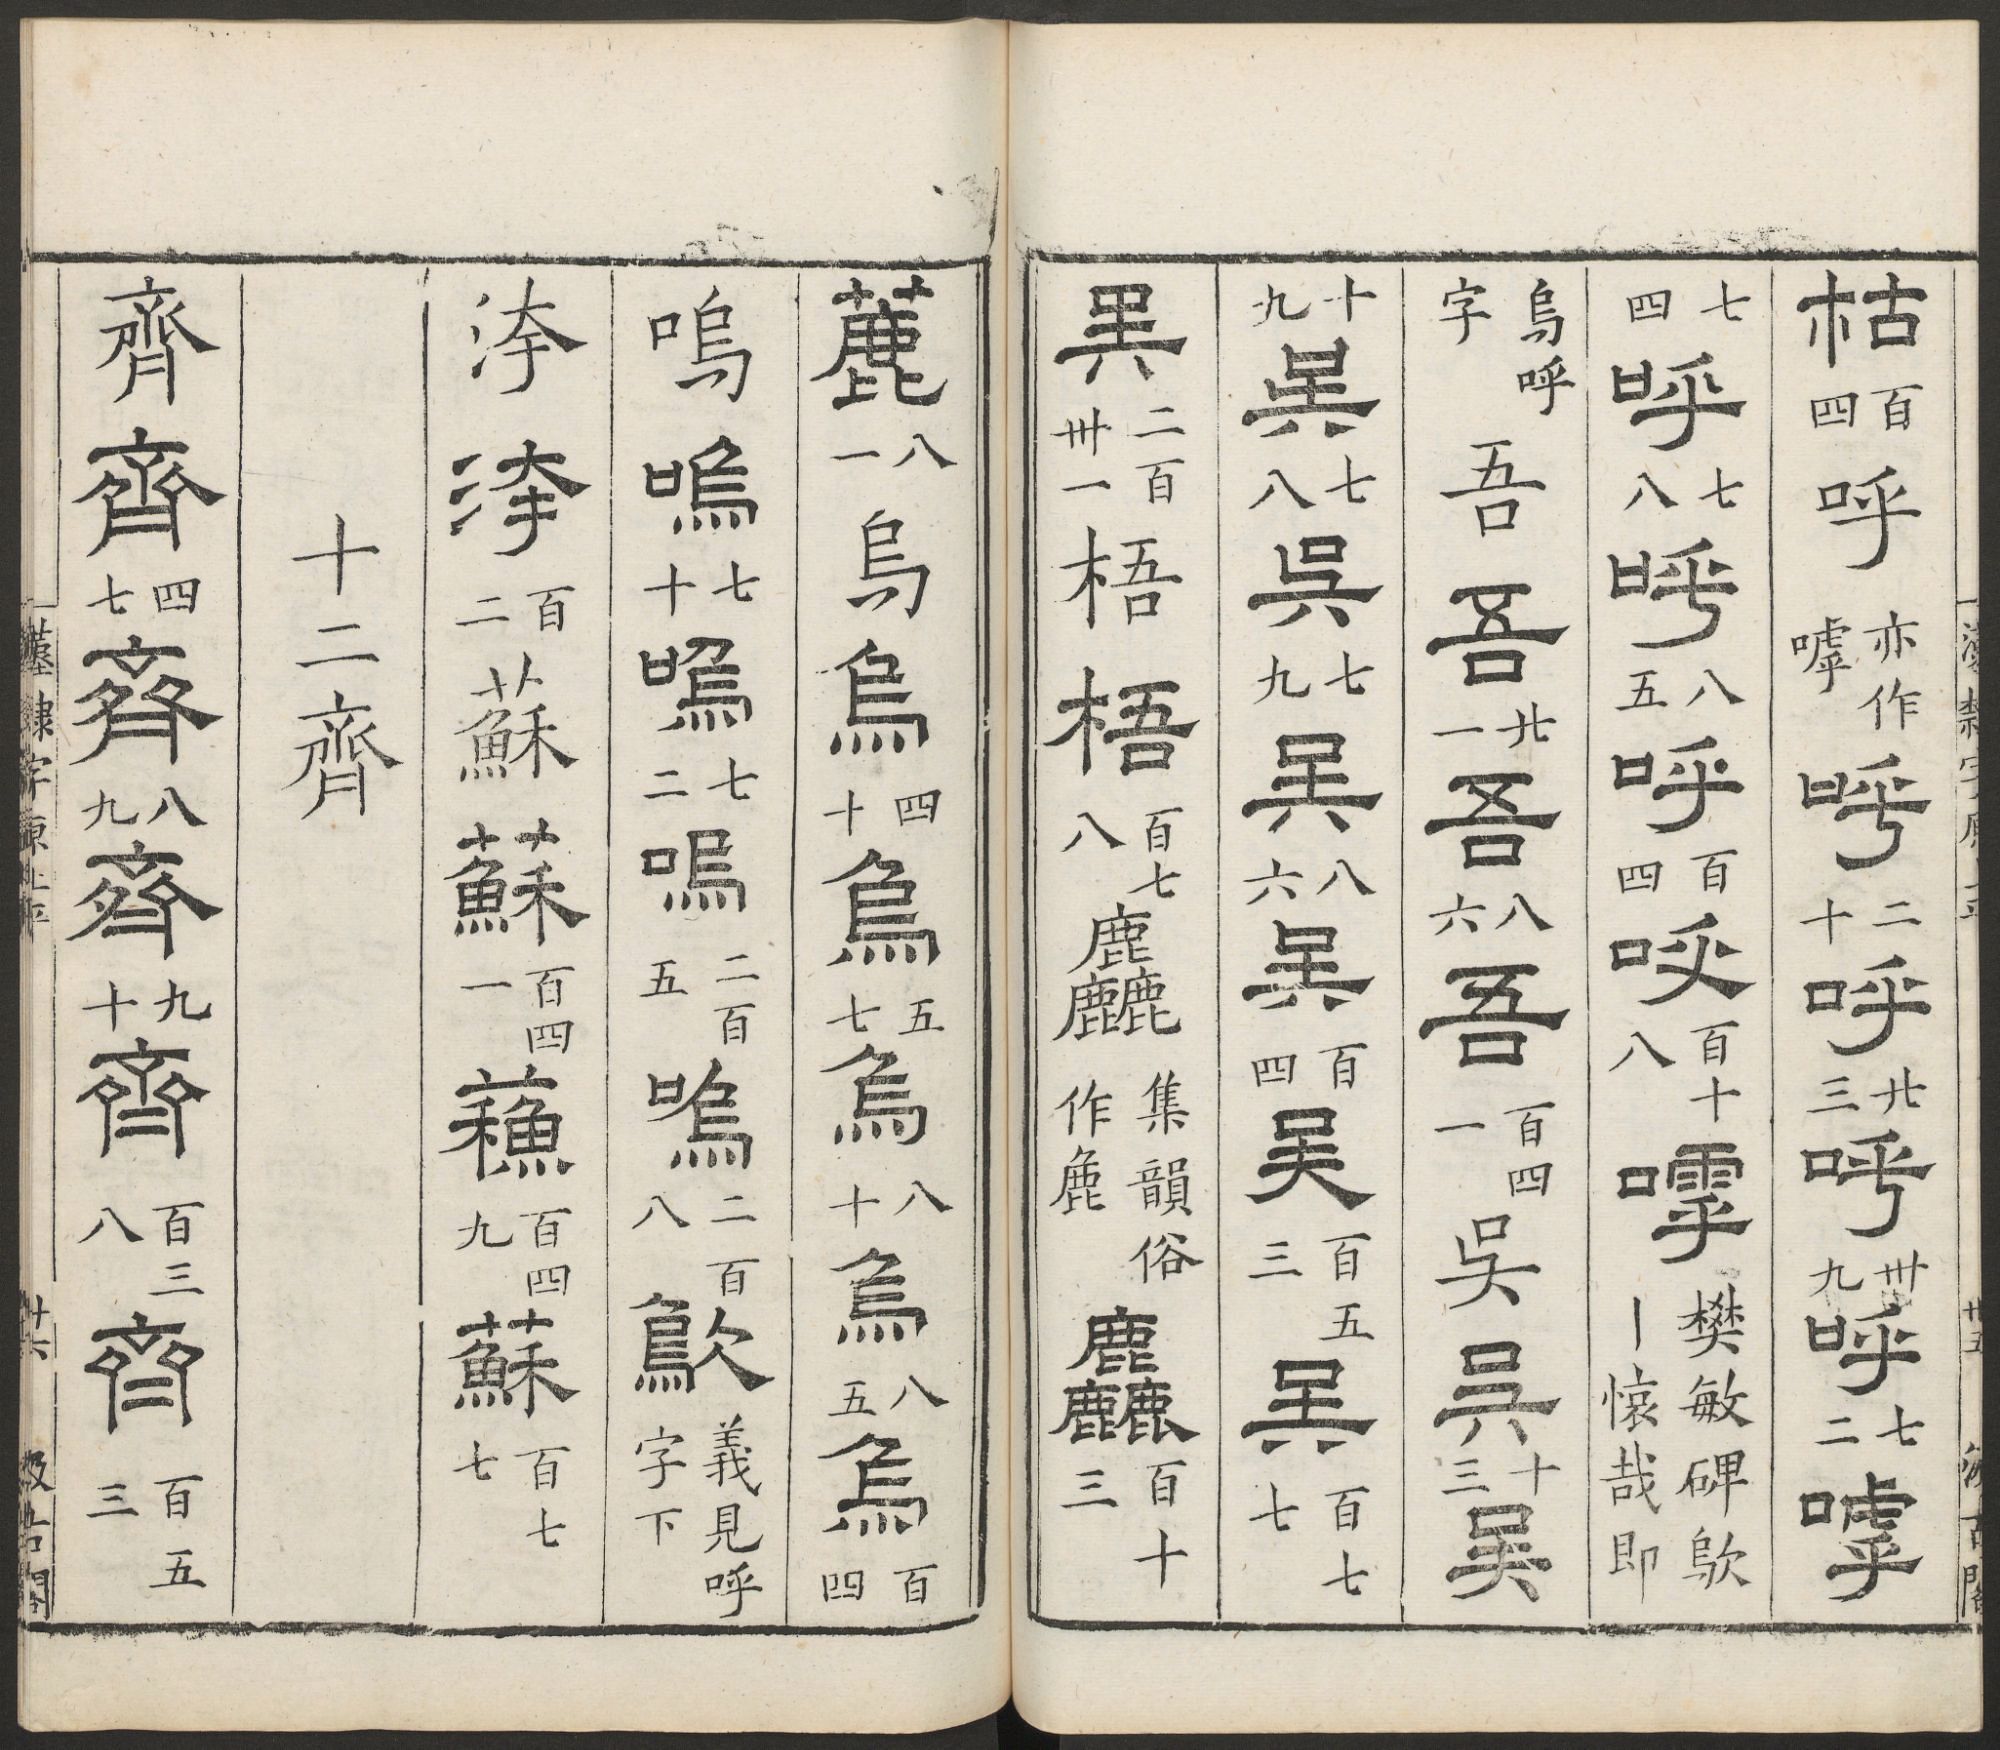 枯百四呼亦作嘑呼二十呼廿三呼卅九呼七二嘑
七四呼七八呼八五呼百四呼百十八嘑樊敏碑歍丨懷哉即
烏呼字吾吾廿一吾八六吾百四一吳吳十三吳
十九吳七八吳七九吳八六吳百四吳百五三吳百七七
吳二百卅一梧梧百七八麤集韻俗作麁麤百十三
麤八一烏烏四十烏五七烏八十烏八五烏百四
嗚嗚七十嗚七二嗚二百五嗚二百八歍義見呼字下
洿洿百二蘇蘇百四一蘓百四九蘇百七七
十二齊
齊齊四七齊八九齊九十齊百三八齊百五三
漢隸字原上平 廿五 汲古閣
漢隸字原上平 廿六 汲古閣